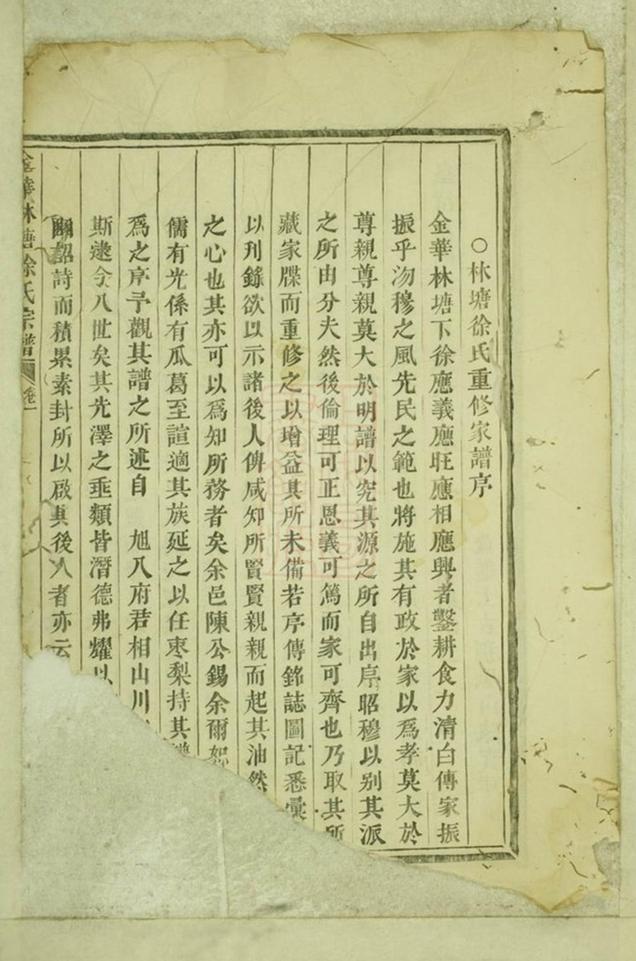 ○林塘徐氏重修家譜序
金華林塘下徐應義應旺應相應興者鑿耕食力清白傳家振
振乎沕穆之風先民之範也將施其有政於家以爲孝莫大於
尊親尊親莫大於明譜以究其源之所自出序昭穆以别其派
之所由分夫然後倫理可正恩義可篤而家可齊也乃取其所
藏家牒而重修之以增益其所未備若序傳銘誌圖記悉彚
以刋錄欲以示諸後人俾咸知所賢賢親親而起其油然
之心也其亦可以爲知所務者矣余邑陳公錫余爾恕
儒有光係有瓜葛至誼適其族延之以任枣梨持其譜
爲之序予觀其譜之所述自 旭八府君相山川
斯逮今八世矣其先澤之垂類皆潛德弗耀以
闢詔詩而積累素封所以啟其後人者亦云
金華林塘徐氏宗譜 卷一